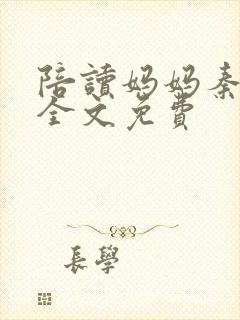 陪讀媽媽秦
全文免費
長學